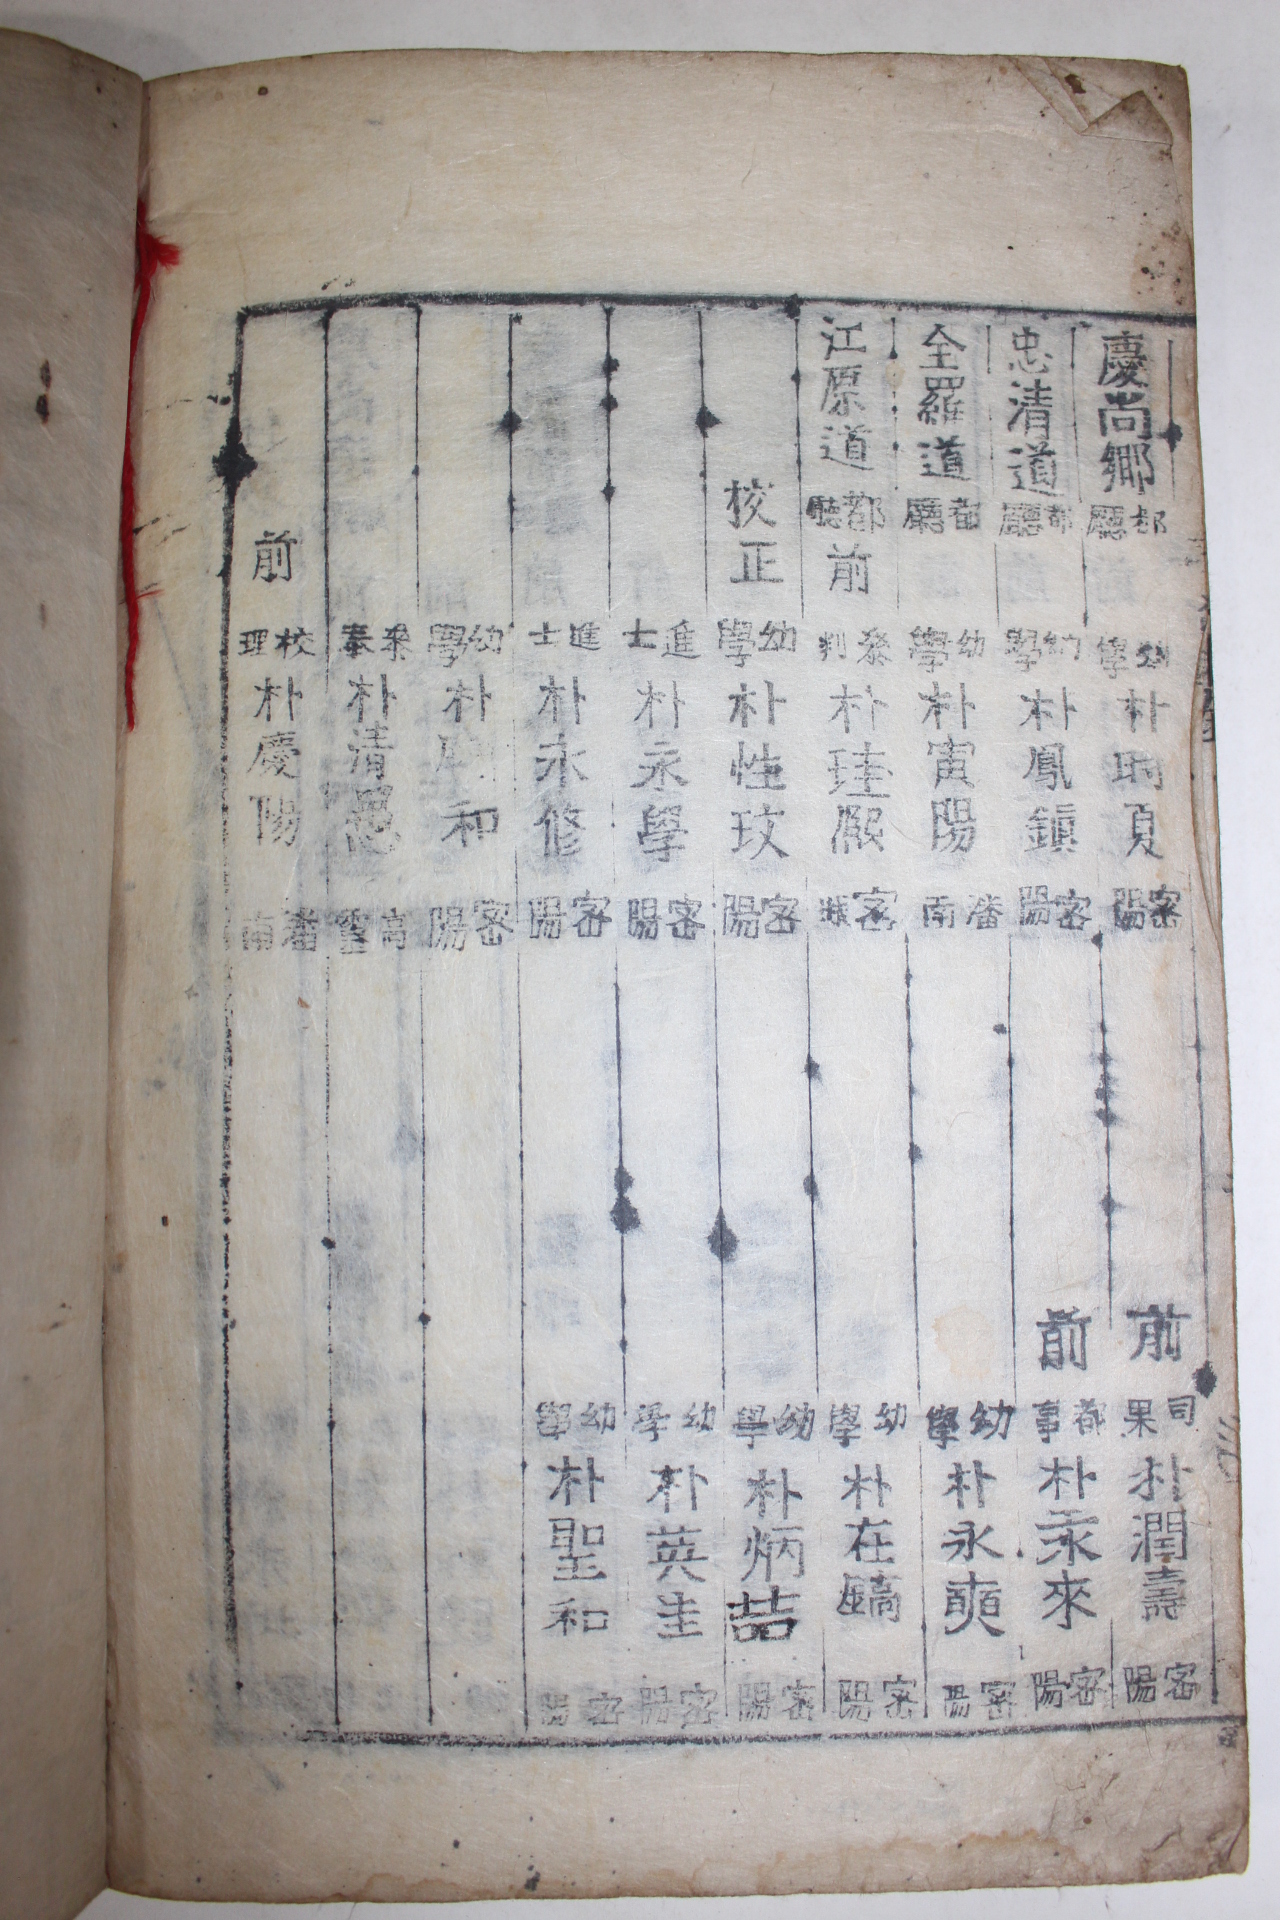 慶尚鄉都廳 幼學朴 夏密陽 前司果朴潤壽密陽
忠清道都廳 幼學朴鳳鎮密陽 前都事朴汞來密陽
全羅道都廳 幼學朴寅陽潘南 幼學朴永奭密陽
江原道都廳 前參判朴珪熙密城 幼學朴在鎬密陽
校正 幼學朴性玟密陽 幼學朴炳喆密陽
進士朴永學密陽 幼學朴英圭密陽
進士朴永修密陽 幼學朴聖和密陽
幼學朴 和密陽
參奉朴清 高靈
前校理朴慶陽潘南